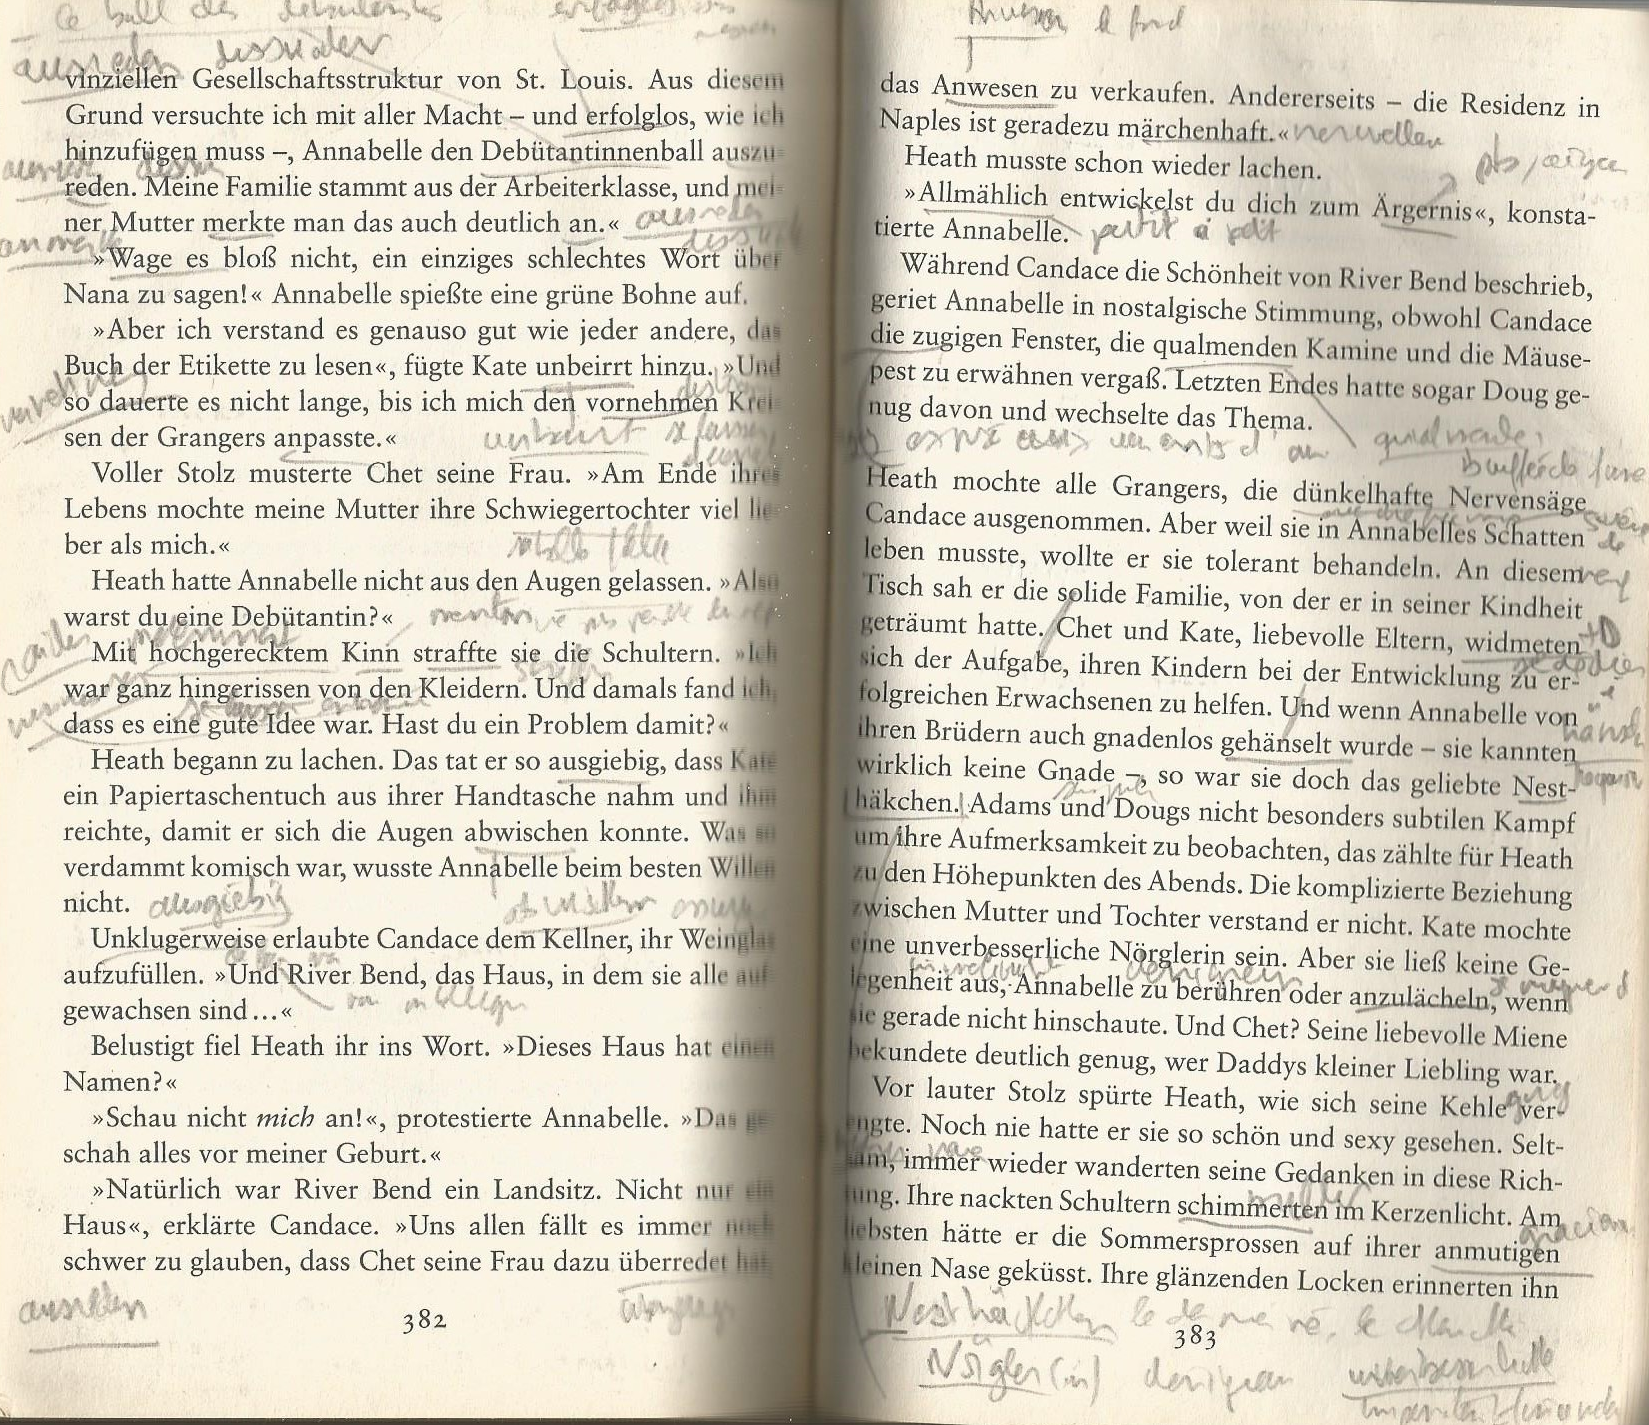 ce bal des débutantes
ausreden dissuader
vinziellen Gesellschaftsstruktur von St. Louis. Aus diesem
Grund versuchte ich mit aller Macht – und erfolglos, wie ich
hinzufügen muss –, Annabelle den Debütantinnenball auszu-
reden. Meine Familie stammt aus der Arbeiterklasse, und mei-
ner Mutter merkte man das auch deutlich an.« ausreden
»Wage es bloß nicht, ein einziges schlechtes Wort über
Nana zu sagen!« Annabelle spießte eine grüne Bohne auf.
»Aber ich verstand es genauso gut wie jeder andere, das
Buch der Etikette zu lesen«, fügte Kate unbeirrt hinzu. »Und
so dauerte es nicht lange, bis ich mich den vornehmen Krei-
sen der Grangers anpasste.«
unbeirrt
Voller Stolz musterte Chet seine Frau. »Am Ende ihres
Lebens mochte meine Mutter ihre Schwiegertochter viel lie-
ber als mich.«
Heath hatte Annabelle nicht aus den Augen gelassen. »Also
warst du eine Debütantin?«
Mit hochgerecktem Kinn straffte sie die Schultern. »Ich
war ganz hingerissen von den Kleidern. Und damals fand ich,
dass es eine gute Idee war. Hast du ein Problem damit?«
Heath begann zu lachen. Das tat er so ausgiebig, dass Kate
ein Papiertaschentuch aus ihrer Handtasche nahm und ihm
reichte, damit er sich die Augen abwischen konnte. Was so
verdammt komisch war, wusste Annabelle beim besten Willen
nicht. ausgiebig abwischen
Unklugerweise erlaubte Candace dem Kellner, ihr Weinglas
aufzufüllen. »Und River Bend, das Haus, in dem sie alle auf-
gewachsen sind …«
Belustigt fiel Heath ihr ins Wort. »Dieses Haus hat einen
Namen?«
»Schau nicht mich an!«, protestierte Annabelle. »Das ge-
schah alles vor meiner Geburt.«
»Natürlich war River Bend ein Landsitz. Nicht nur ein
Haus«, erklärte Candace. »Uns allen fällt es immer noch
schwer zu glauben, dass Chet seine Frau dazu überredet hat,
ausreden
382
Anwesen le fond
das Anwesen zu verkaufen. Andererseits – die Residenz in
Naples ist geradezu märchenhaft.«
Heath musste schon wieder lachen.
»Allmählich entwickelst du dich zum Ärgernis«, konsta-
tierte Annabelle. petit à petit
Während Candace die Schönheit von River Bend beschrieb,
geriet Annabelle in nostalgische Stimmung, obwohl Candace
die zugigen Fenster, die qualmenden Kamine und die Mäuse-
pest zu erwähnen vergaß. Letzten Endes hatte sogar Doug ge-
nug davon und wechselte das Thema.
Heath mochte alle Grangers, die dünkelhafte Nervensäge
Candace ausgenommen. Aber weil sie in Annabelles Schatten
leben musste, wollte er sie tolerant behandeln. An diesem
Tisch sah er die solide Familie, von der er in seiner Kindheit
geträumt hatte. Chet und Kate, liebevolle Eltern, widmeten
sich der Aufgabe, ihren Kindern bei der Entwicklung zu er-
folgreichen Erwachsenen zu helfen. Und wenn Annabelle von
ihren Brüdern auch gnadenlos gehänselt wurde – sie kannten
wirklich keine Gnade –, so war sie doch das geliebte Nest-
häkchen. Adams und Dougs nicht besonders subtilen Kampf
um ihre Aufmerksamkeit zu beobachten, das zählte für Heath
zu den Höhepunkten des Abends. Die komplizierte Beziehung
zwischen Mutter und Tochter verstand er nicht. Kate mochte
eine unverbesserliche Nörglerin sein. Aber sie ließ keine Ge-
legenheit aus, Annabelle zu berühren oder anzulächeln, wenn
sie gerade nicht hinschaute. Und Chet? Seine liebevolle Miene
bekundete deutlich genug, wer Daddys kleiner Liebling war.
Vor lauter Stolz spürte Heath, wie sich seine Kehle ver-
engte. Noch nie hatte er sie so schön und sexy gesehen. Selt-
sam, immer wieder wanderten seine Gedanken in diese Rich-
tung. Ihre nackten Schultern schimmerten im Kerzenlicht. Am
liebsten hätte er die Sommersprossen auf ihrer anmutigen
kleinen Nase geküsst. Ihre glänzenden Locken erinnerten ihn
Nesthäkchen
383
Nörgler(in)